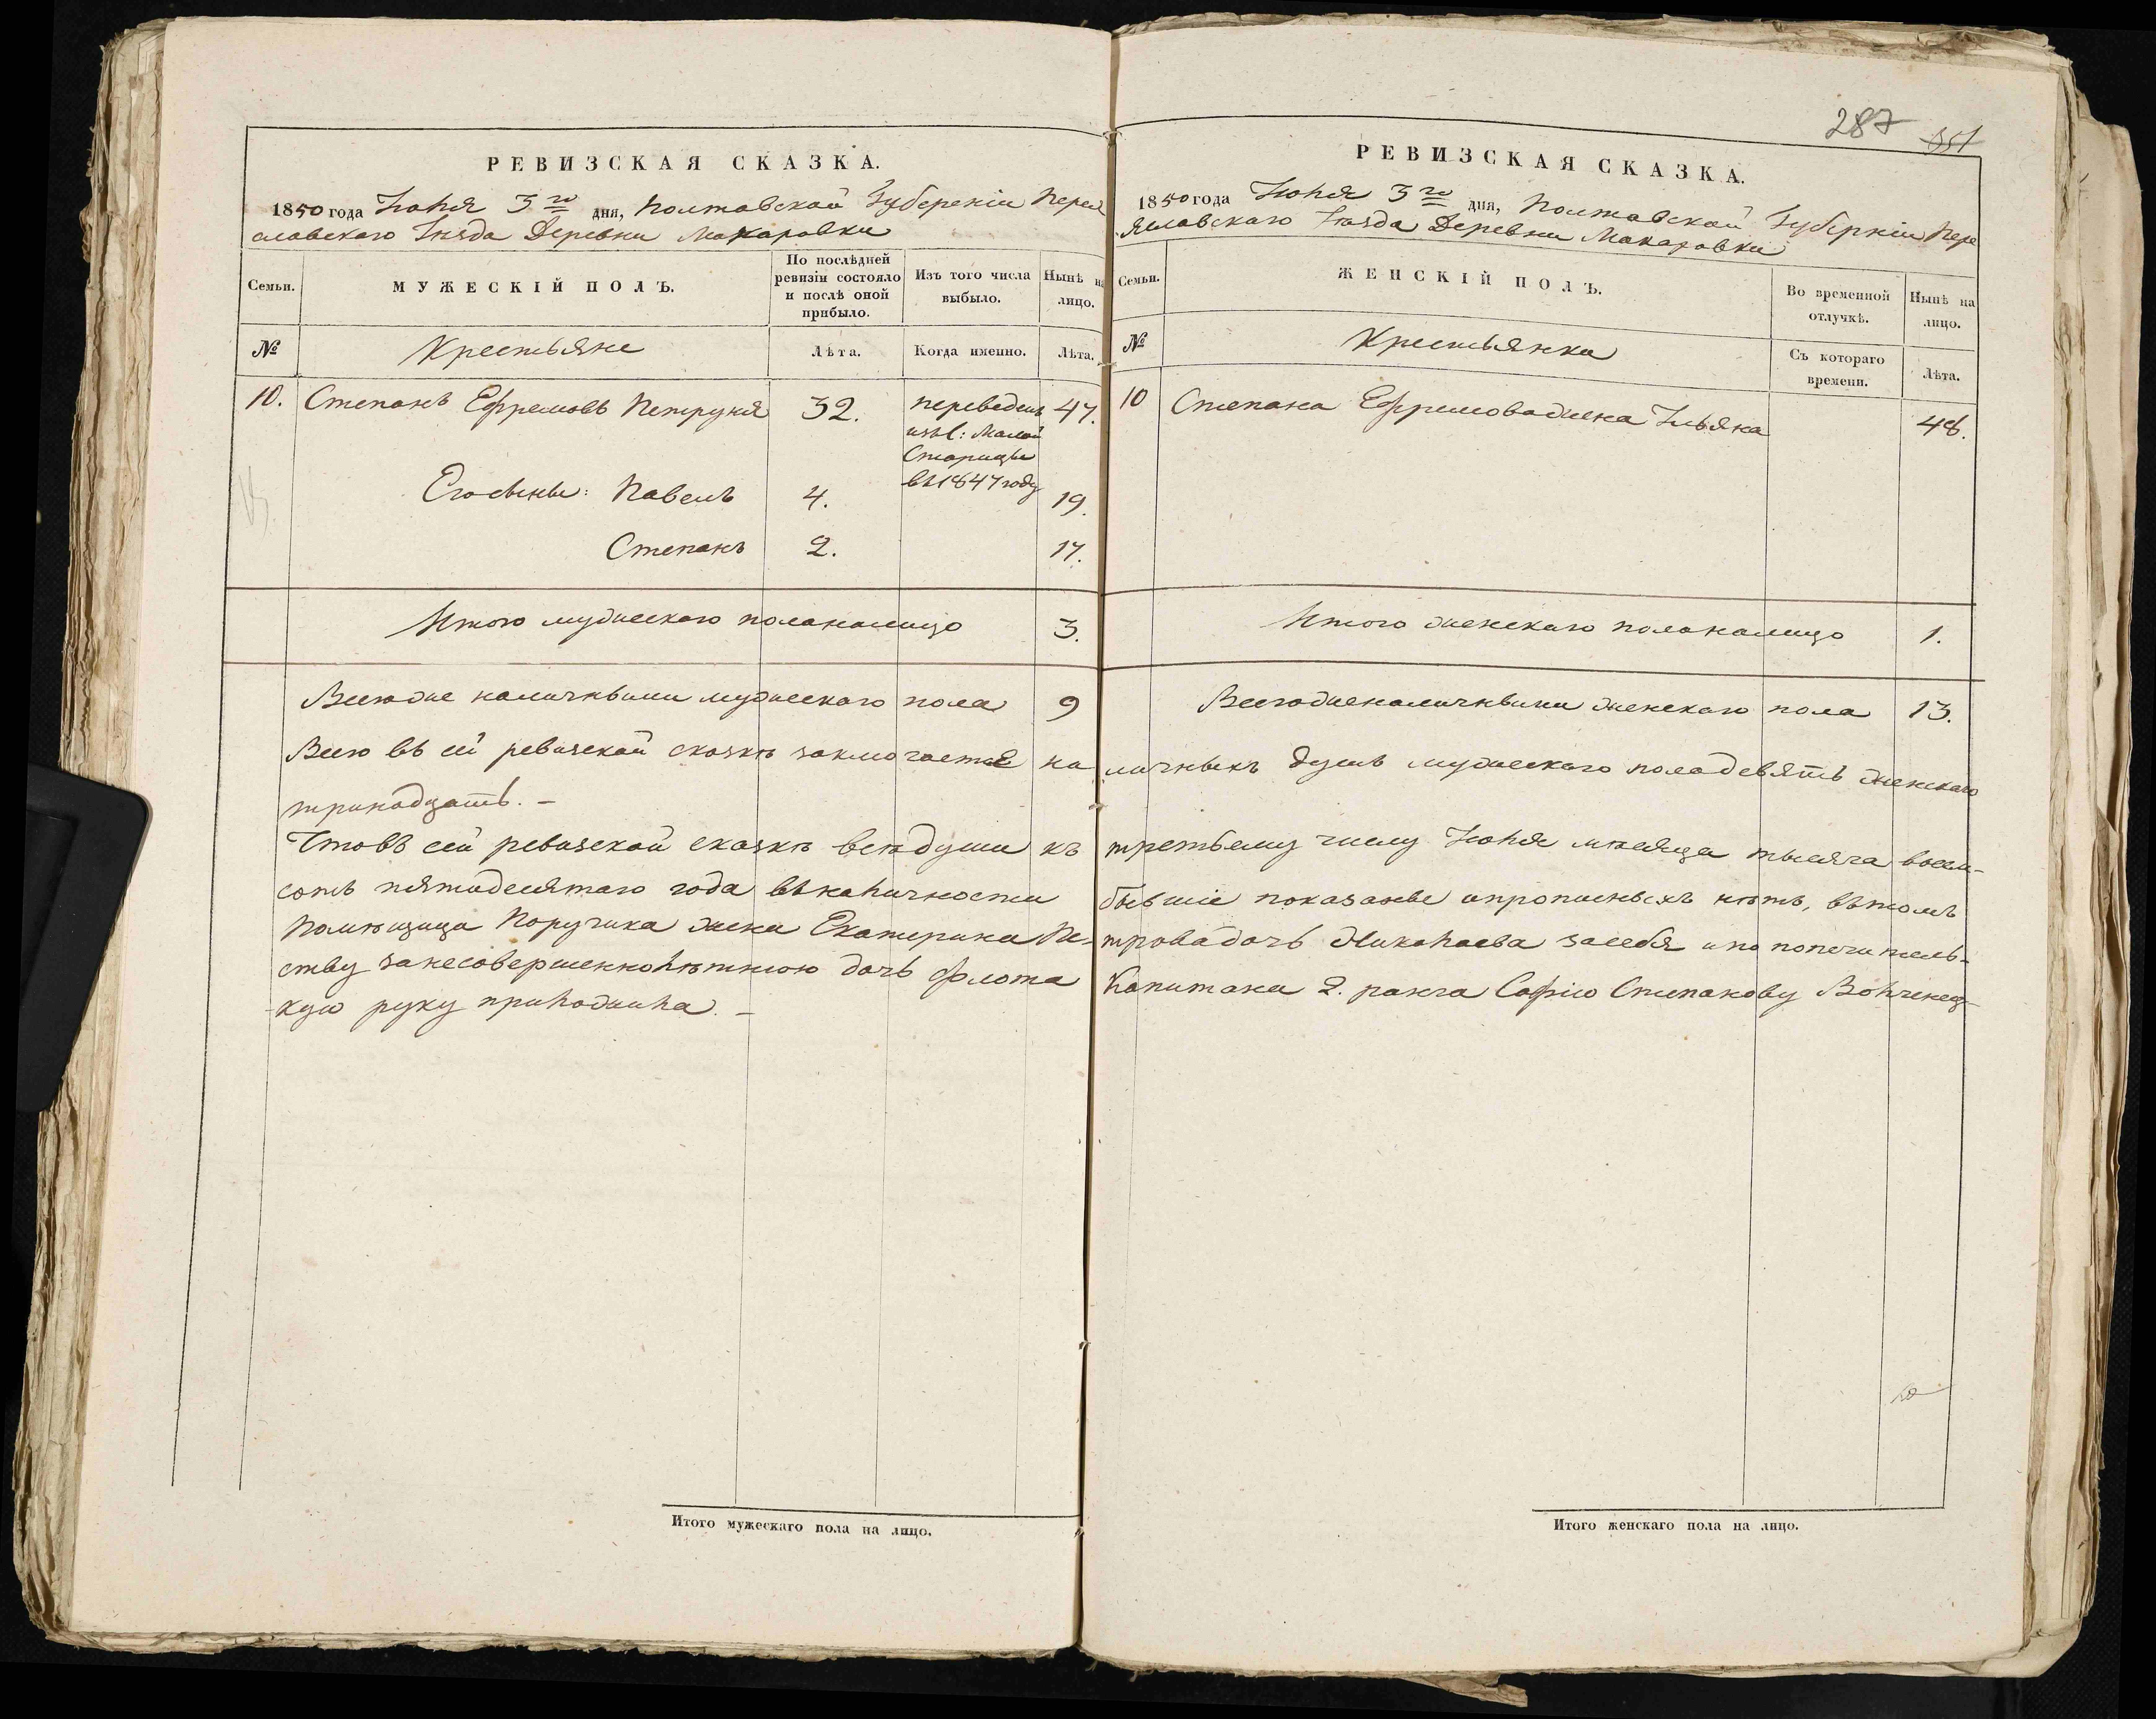 РЕВИЗСКАЯ СКАЗКА.
1850 года Іюня 3го дня, Полтавской Губерніи Перея
славскаго Уѣзда Деревни Макаровки
Семьи.
МУЖЕСКІЙ ПОЛЪ.
По послѣдней
ревизіи состояло
и послѣ оной
прибыло.
Изъ того числа
выбыло.
Нынѣ на
лицо.
№
Крестьяне
Лѣта.
Когда именно.
Лѣта.
10. Степанъ Ефремовъ Петруня 32. переведенъ 47.
изъ С: Малой
Старицы
въ 1847 году
Его сыны: Павелъ 4. 19.
Степанъ 2. 17.
Итого мужескаго пола налицо 3.
Всего же наличныхъ мужескаго пола 9
Всего въ сей ревизской сказкѣ заключается на
тринадцать. –
Что въ сей ревизской сказкѣ всѣ души къ
сотъ пятидесятаго года въ наличности
Помѣщица Поручика жена Екатерина Пе-
ству за несовершеннолѣтнюю дочь флота
кую руку приложила. –
Итого мужескаго пола на лицо.
287 351
РЕВИЗСКАЯ СКАЗКА.
1850 года Іюня 3го дня, Полтавской Губерніи Пере
яславскаго Уѣзда Деревни Макаровки
Семьи.
ЖЕНСКІЙ ПОЛЪ.
Во временной
отлучкѣ.
Нынѣ на
лицо.
№
Крестьянки
Съ котораго
времени.
Лѣта.
10 Степана Ефремова жена Ульяна 48.
Итого женскаго пола налицо 1.
Всего же наличныхъ женскаго пола 13.
личныхъ душъ мужескаго пола девять женскаго
третьему числу Іюня мѣсяца тысяча восем-
бывшіе показаны и прописныхъ нѣтъ, въ томъ
трова дочь Николаева за себя и по попечитель-
Капитана 2. ранга Софію Степанову
Итого женскаго пола на лицо.